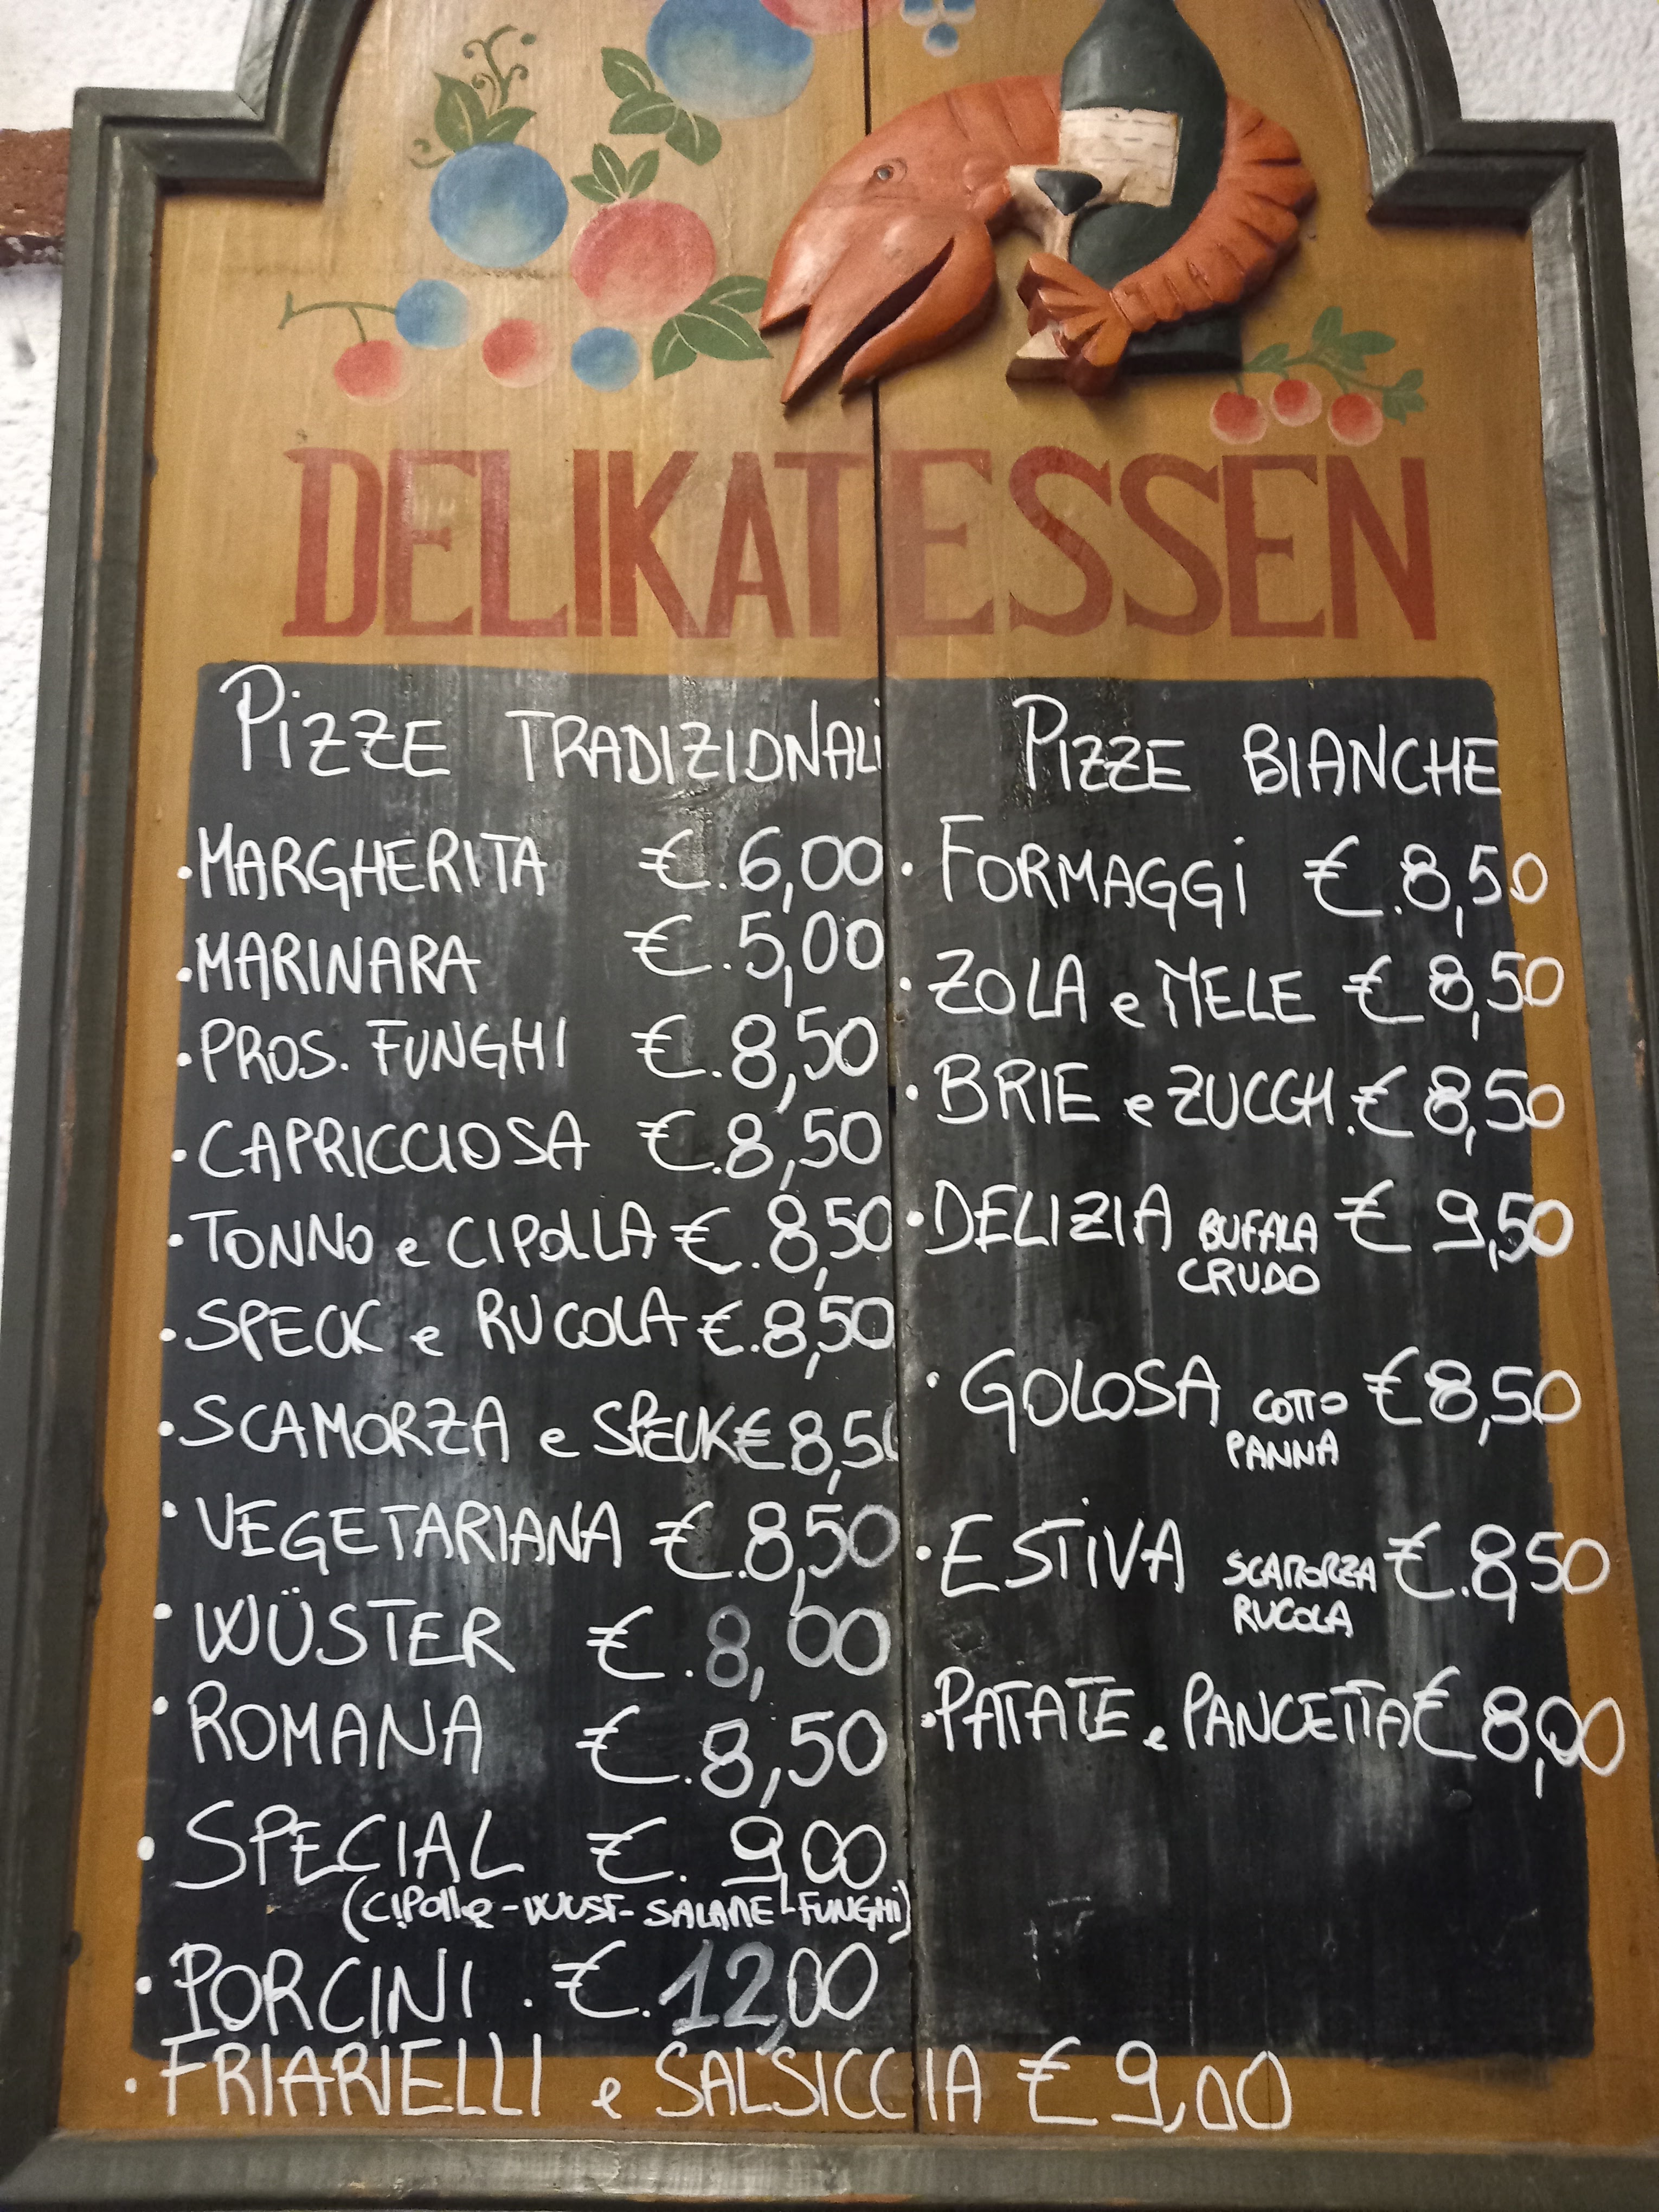 DELIKATESSEN
PiZZE TRADIZIONALi
.MARGHERITA €.6,00
.MARINARA €.5,00
.PROS. FUNGHI €.8,50
.CAPRICCIOSA €.8,50
.TONNO e CIPOLLA €.8,50
.SPECK e RUCOLA €.8,50
.SCAMORZA e SPECK €8,50
.VEGETARIANA €.8,50
.WÜSTER €.8,00
.ROMANA €.8,50
.SPECIAL €.9,00
(CIPOLLe-WUST-SALAME-FUNGHi)
.PORCINI.€.12,00
.FRIARIELLI e SALSICCIA €9,00
PiZZE BIANCHE
.FORMAGGi €.8,50
.ZOLA e MELE €8,50
.BRIE e ZUCCH.€8,50
.DELIZIA BUFALA €9,50
CRUDO
.GOLOSA COTTO €8,50
PANNA
.ESTiVA SCAMORZA €.8,50
RUCOLA
.PATATE e PANCETTA €8,00